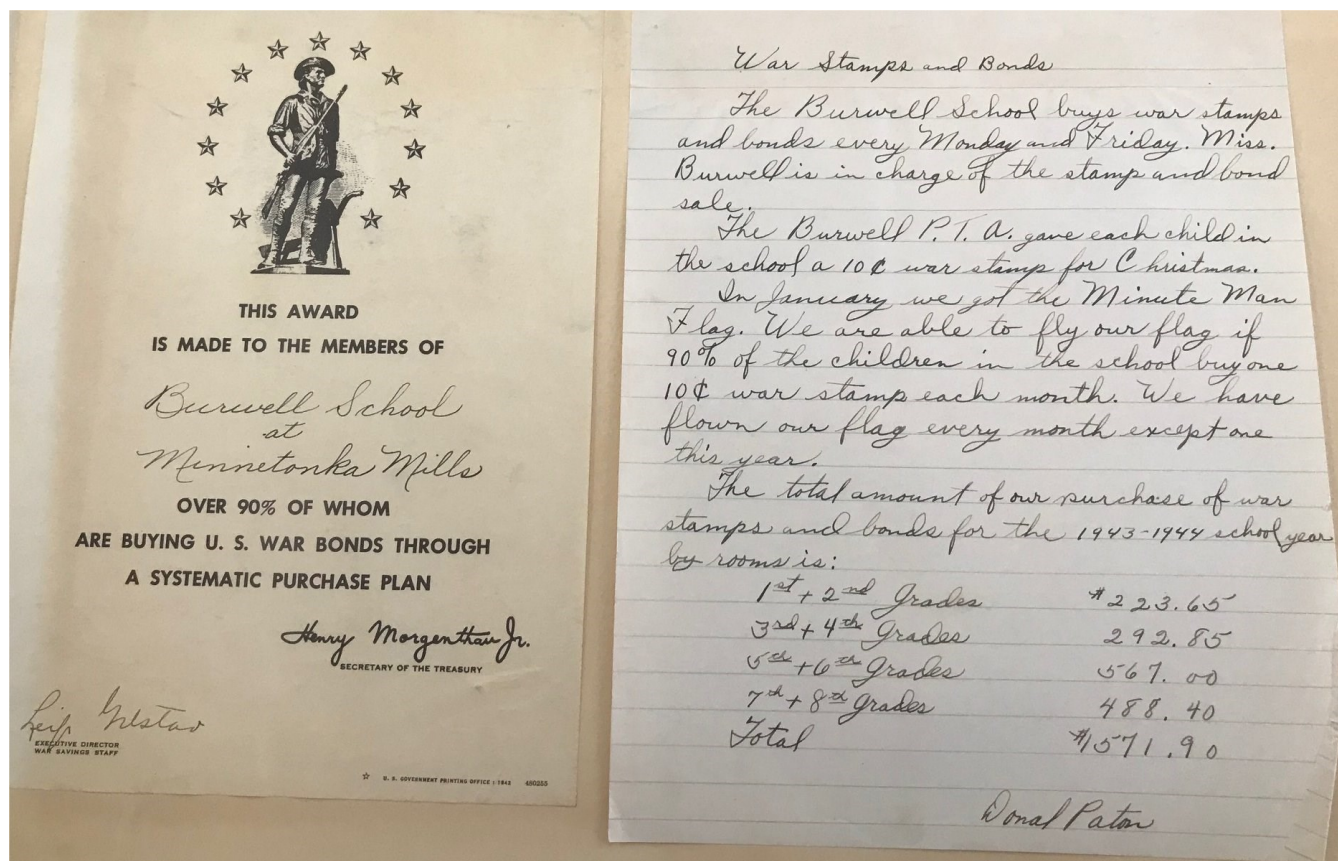 THIS AWARD
IS MADE TO THE MEMBERS OF
Burwell School
at
Minnetonka Mills
OVER 90% OF WHOM
ARE BUYING U. S. WAR BONDS THROUGH
A SYSTEMATIC PURCHASE PLAN
Henry Morgenthau Jr.
SECRETARY OF THE TREASURY
Leif
EXECUTIVE DIRECTOR
WAR SAVINGS STAFF
☆ U. S. GOVERNMENT PRINTING OFFICE : 1943 480255
War Stamps and Bonds
The Burwell School buys war stamps
and bonds every Monday and Friday. Miss.
Burwell is in charge of the stamp and bond
sale.
The Burwell P. T. A. gave each child in
the school a 10¢ war stamp for Christmas.
In January we got the Minute Man
Flag. We are able to fly our flag if
90% of the children in the school buy one
10¢ war stamp each month. We have
flown our flag every month except one
this year.
The total amount of our purchase of war
stamps and bonds for the 1943-1944 school year
by rooms is:
1st + 2nd Grades $223.65
3rd + 4th Grades 292.85
5th + 6th Grades 567.00
7th + 8th Grades 488.40
Total $1571.90
Donal Paton